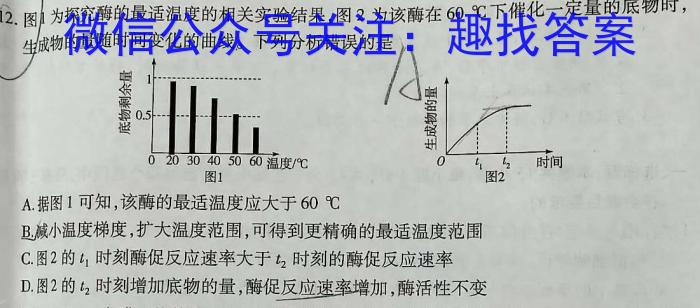 12. 图1为探究酶的最适温度的相关实验结果,图2为该酶在60 ℃下催化一定量的底物时,
生成物的量随时间变化的曲线。下列分析错误的是
微信公众号关注：趣找答案
A
底物剩余量
1
0.5
0 20 30 40 50 60 温度/℃
图1
生成物的量
O t₁ t₂ 时间
图2
A.据图1可知,该酶的最适温度应大于60 ℃
B.减小温度梯度,扩大温度范围,可得到更精确的最适温度范围
C.图2的t₁时刻酶促反应速率大于t₂时刻的酶促反应速率
D.图2的t₂时刻增加底物的量,酶促反应速率增加,酶活性不变